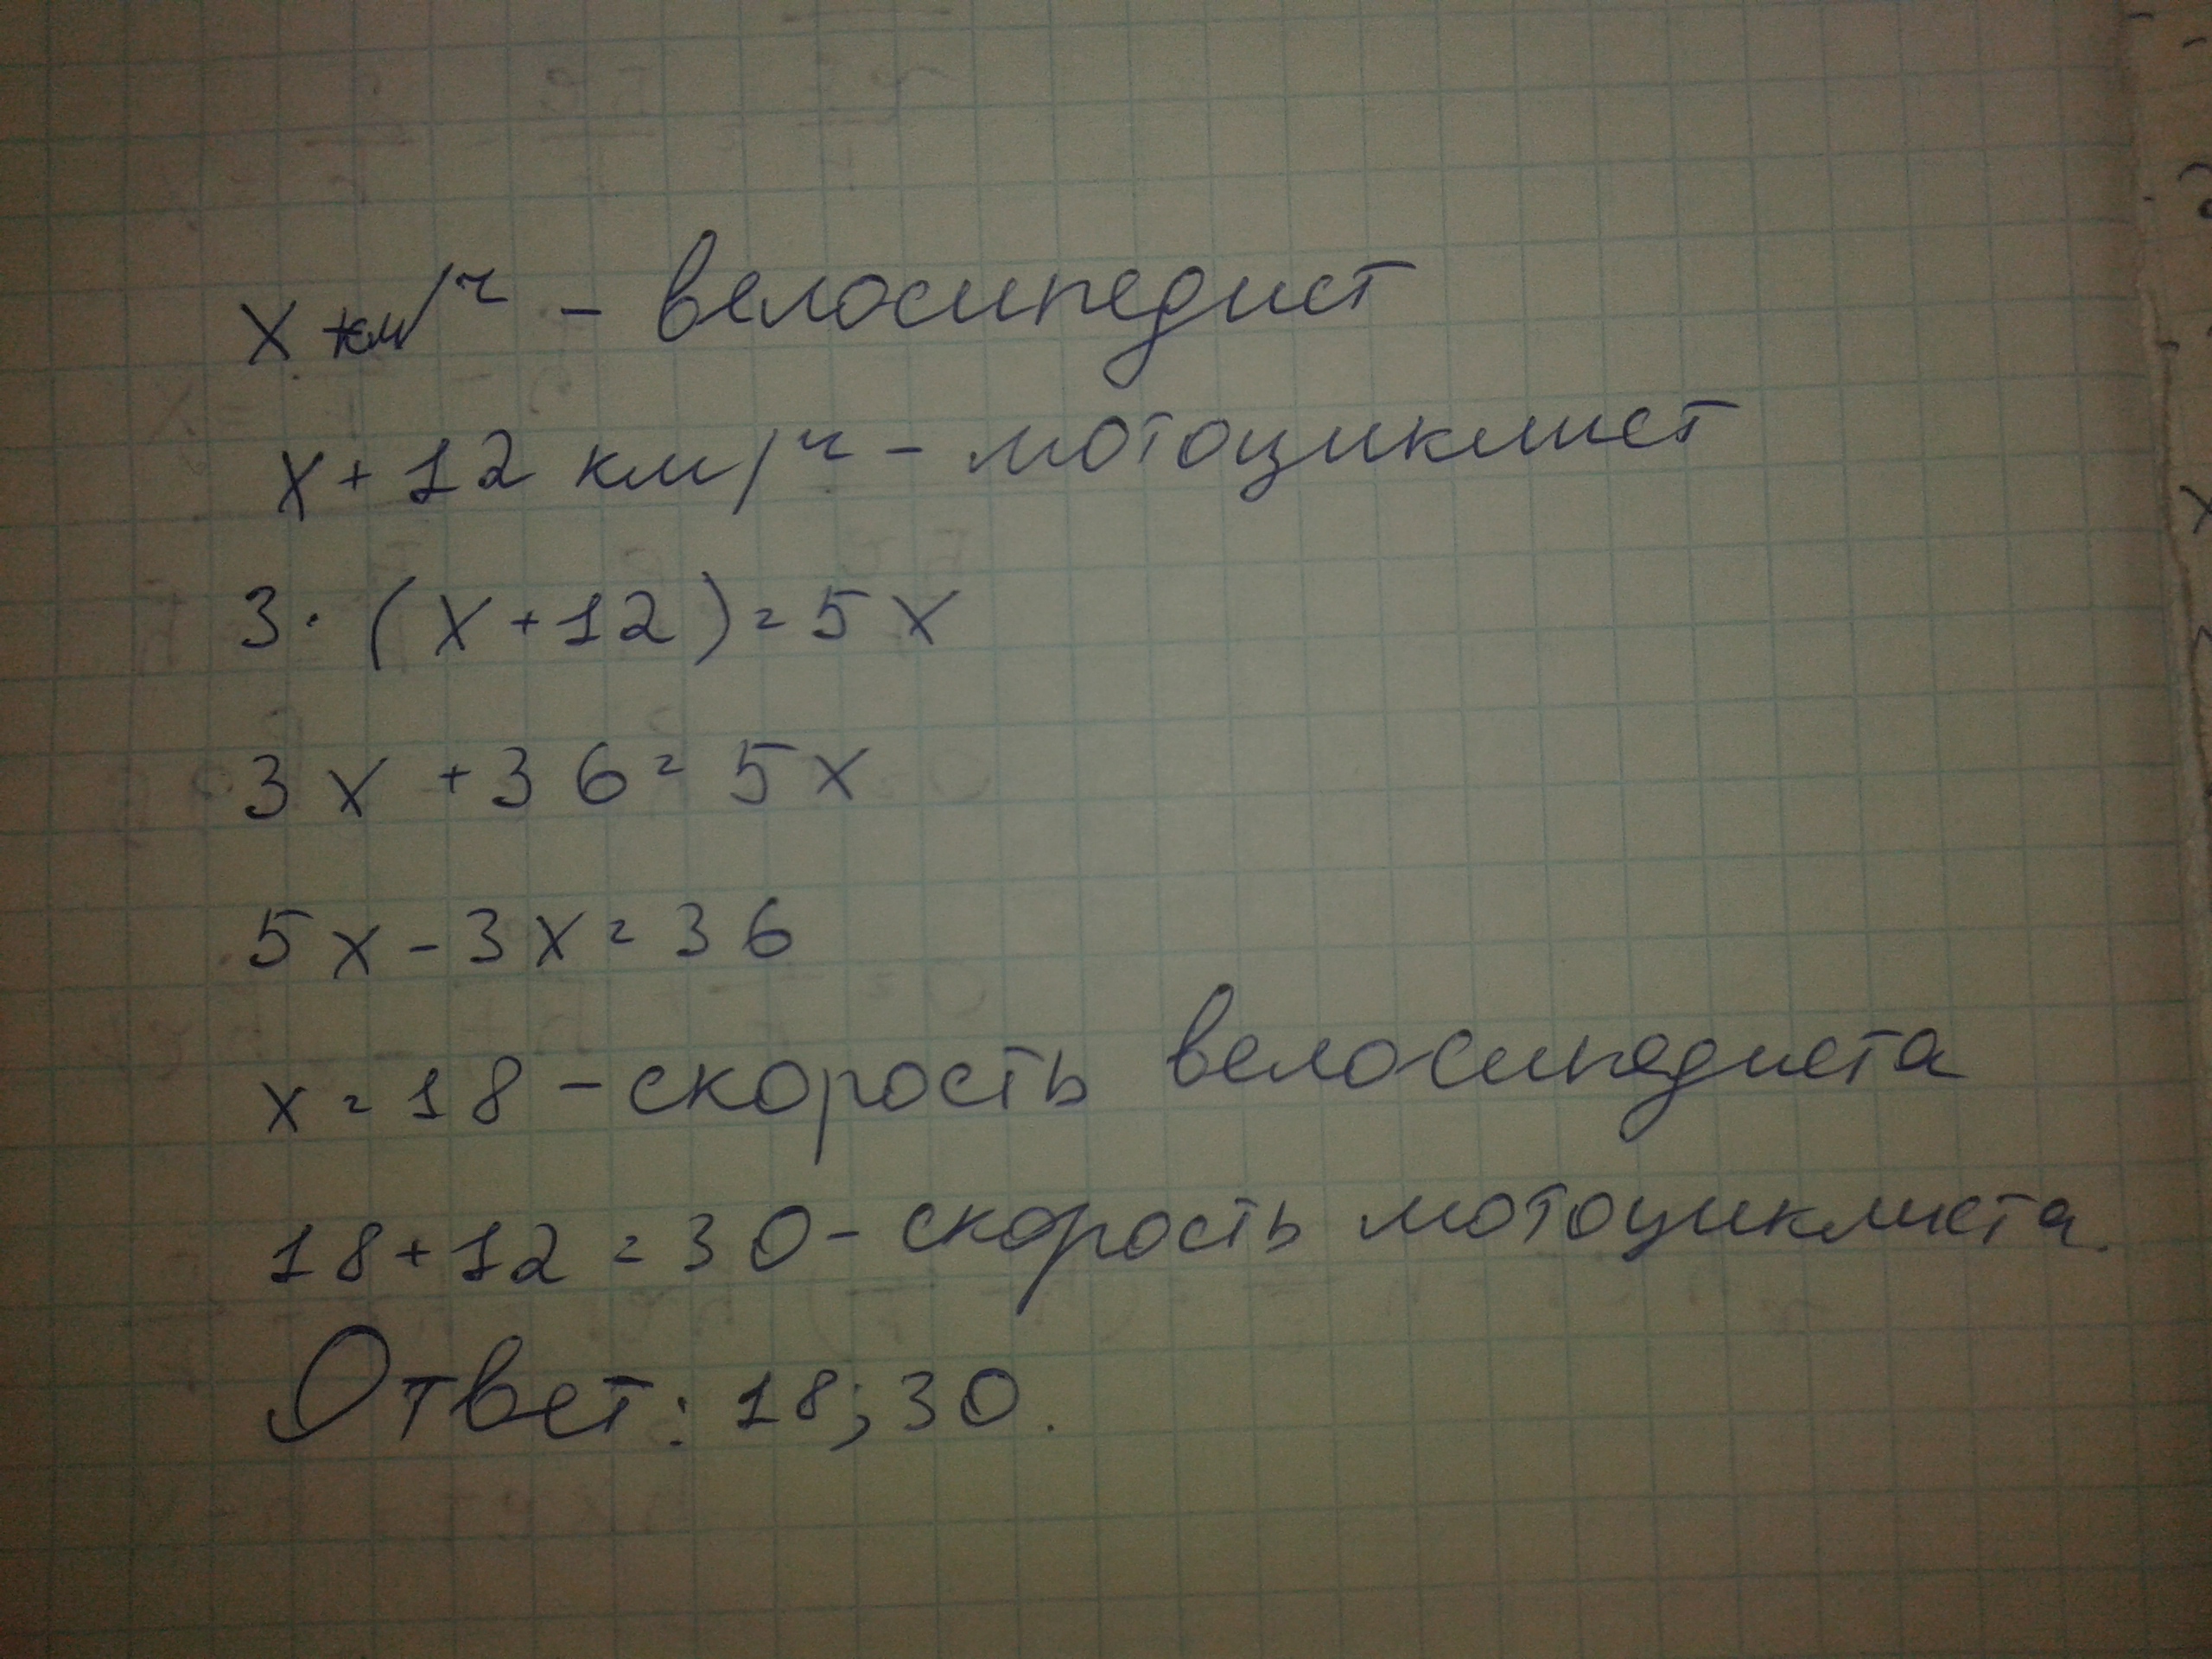 x км/ч – велосипедист
x + 12 км/ч – мотоциклист
3 · (x + 12) = 5x
3x + 36 = 5x
5x – 3x = 36
x = 18 – скорость велосипедиста
18 + 12 = 30 – скорость мотоциклиста.
Ответ: 18; 30.